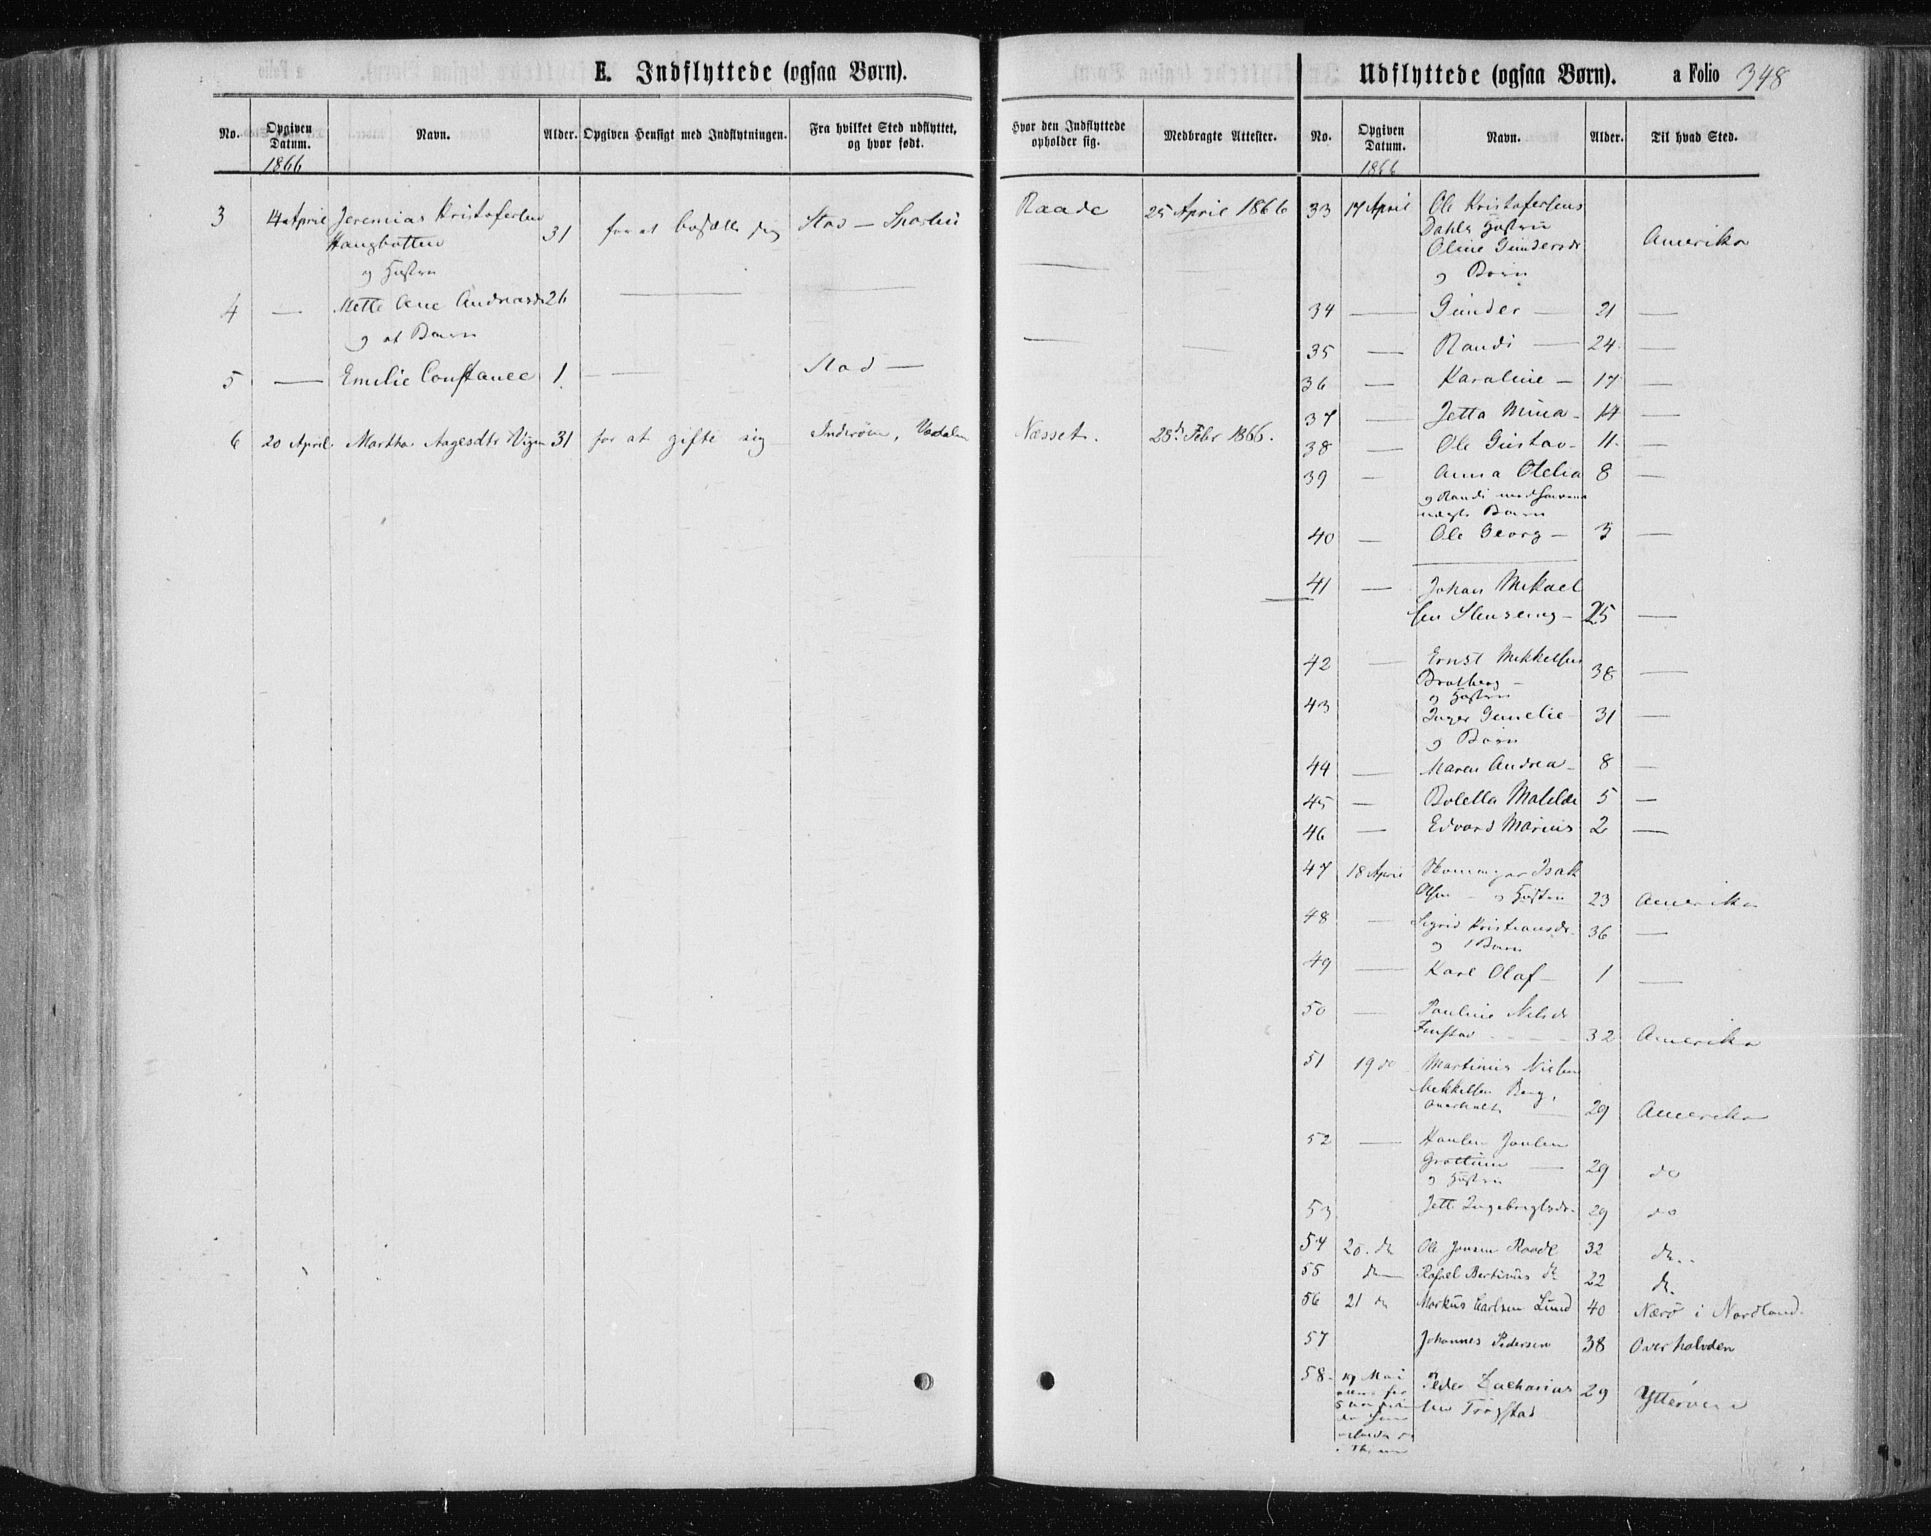 E. Indflyttede (ogsaa Børn).
No. Opgiven Datum. Navn. Alder. Opgiven Hensigt med Indflytningen. Fra hvilket Sted udflyttet, og hvor født.
1866
3 14 April Jeremias Kristofersen
Haugbotten 31 for at bosætte sig Stod — Sparbu
og Hustru
4 — Mette Ane Andreasdr 26 — —
og et Barn
5 — Emilie Constance 1. — Stod —
6 20 April Martha Aagesdtr Vigen 31 for at gifte sig Inderøen, Værdalen
Hvor den Indflyttede opholder sig. Medbragte Attester.
Raade 25 April 1866
—
— —
Næsset. 28de Febr 1866.
Udflyttede (ogsaa Børn). a Folio 348
No. Opgiven Datum. Navn. Alder. Til hvad Sted.
1866
33 17 April Ole Kristofersens
Dahls Hustru
Oline Gundersdr Amerika
og Børn
34 — Gunder — 21 —
35 — Randi — 24 —
36 — Karoline — 17 —
37 — Jetta Mina — 14 —
38 — Ole Gustav — 11 —
39 — Anna Otelia 8 —
og Randi
Barn
40 — Ole Georg — 3 —
41 — Johan Mikael
sen — 25 —
42 — Ernst Mikkelsen
Bratberg — 38 —
og Hustru
43 Inger — 31 —
og Børn
44 — Maren Andrea — 8 —
45 — Boletta Matilde 5 —
46 — Edvard Marius 2 —
47 18 April Isak
Olsen — og Hustru 23 Amerika
48 — Sigrid Kristiansdr. 36 —
og 1 Barn
49 — Karl Olaf — 1 —
50 — Pauline Nilsdr
Finstad 32 Amerika
51 19 do Martinus Nielsen
Mikkelsen Berg,
— 29 Amerika
52 — Jonsen
Grøttum — 29 do
og Hustru
53 Jett Ingebrigtsdr. 29 do
54 20. do Ole Jonsen Raade 32 do.
55 do — Rafael Bertinus do 22 do.
56 21 do Markus Carlsen Lund 40 Nærø i Nordland.
57 Johannes Pedersen 38 Overhalvden
58. 19 Mai Peder Zacharias
sen Trøgstad 29 Ytterøen